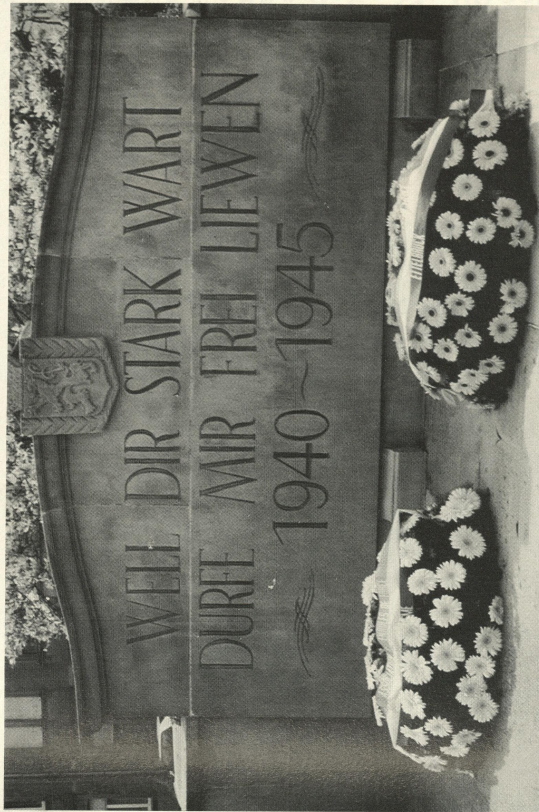 WELL DIR STARK WART
DURFE MIR FREI LIEWEN
1940~1945